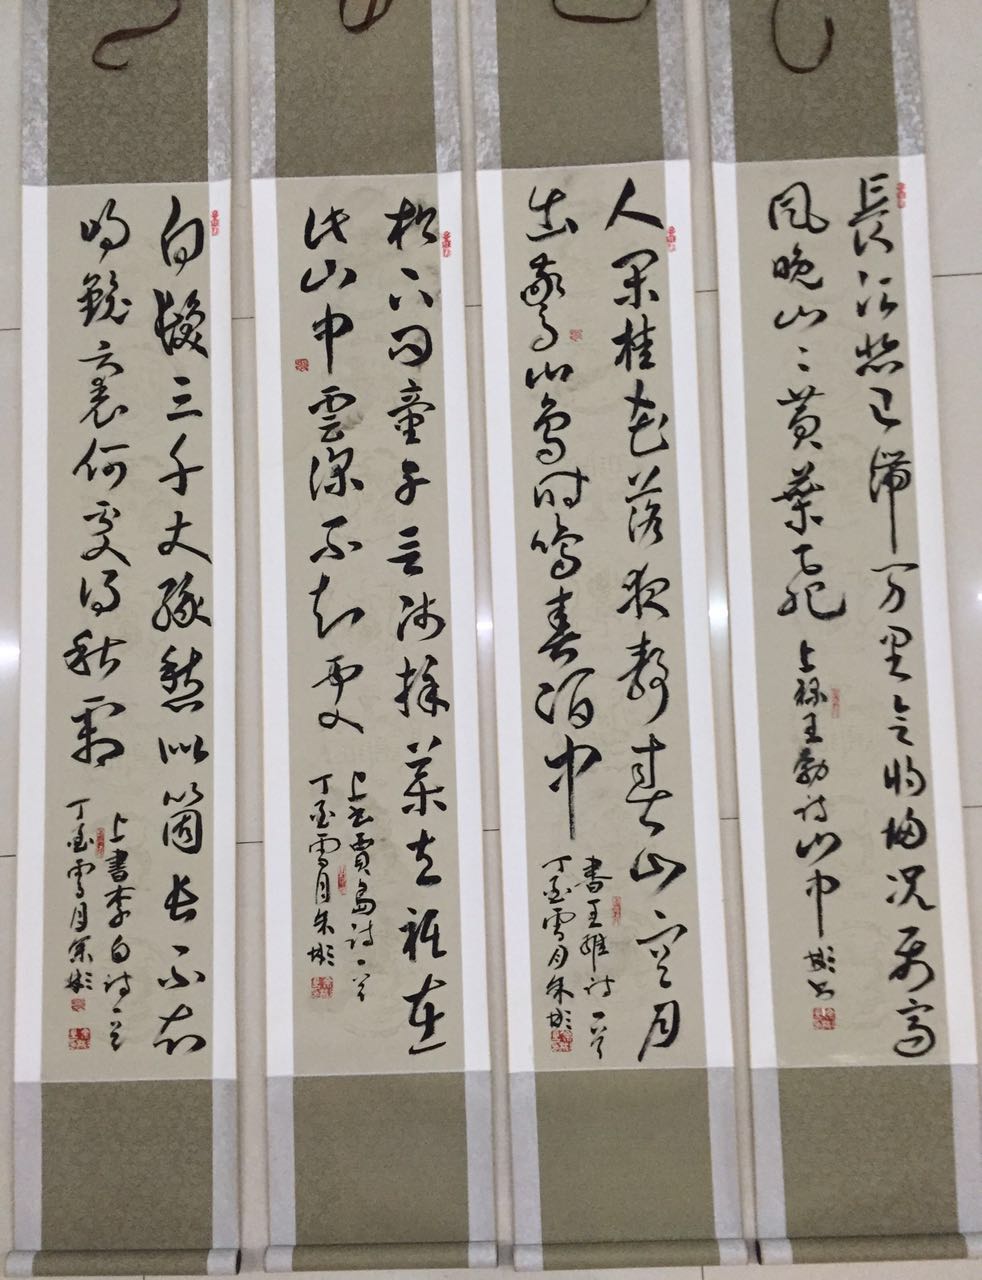 長江悲已滞万里念將歸况属高
風晚山〻黄葉飛
上録王勃诗山中 彬书
人闲桂花落夜静春山空月
出驚山鸟时鸣春涧中
書王維诗一首
丁酉雪月朱彬
松下问童子言师採藥去祗在
此山中雲深不知處
上书賈岛诗一首
丁酉雪月朱彬
白髮三千丈緣愁似箇長不知
明鏡裏何處得秋霜
上書李白诗一首
丁酉雪月朱彬